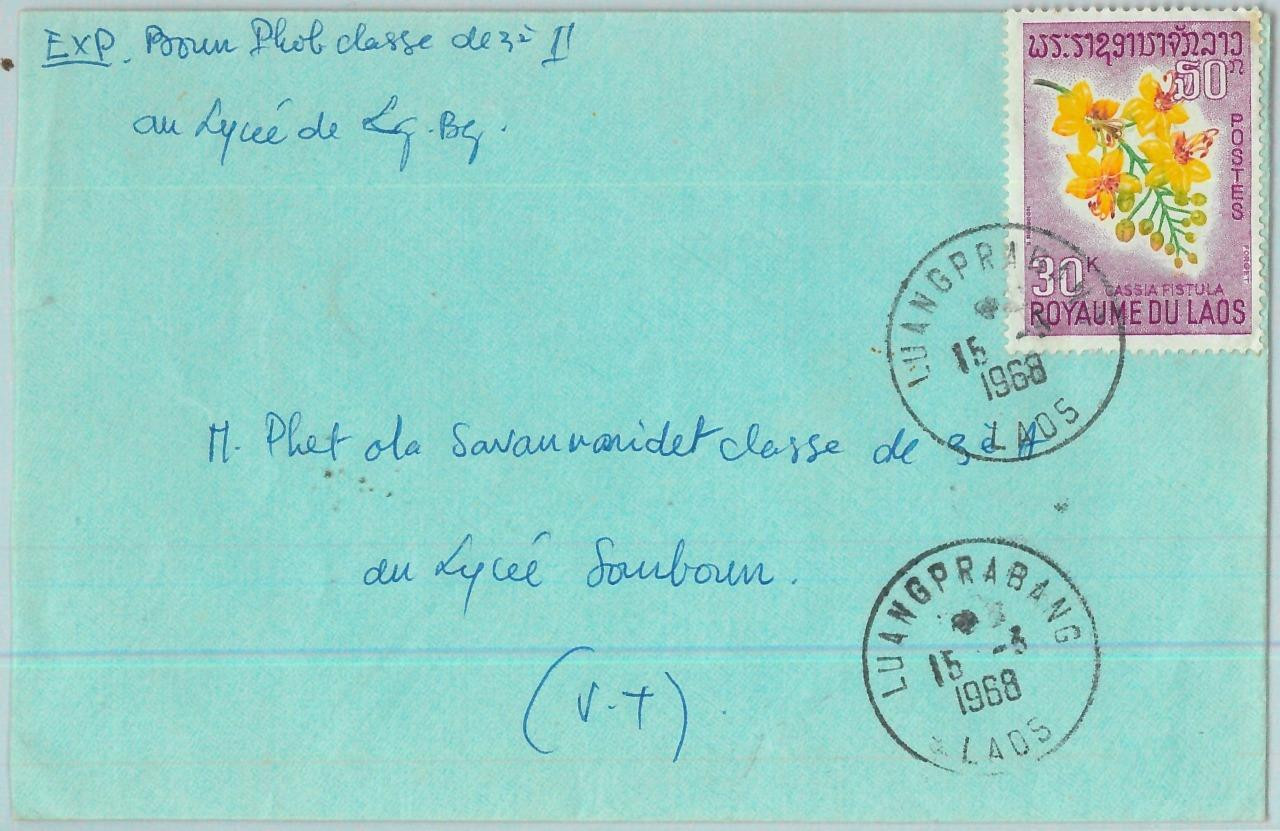 EXP. Boun Phob classe de 3è II
au Lycée de Lg. Bg.
ພຣະຣາຊອານາຈັກລາວ
໓໐ກ
POSTES
30K
CASSIA FISTULA
ROYAUME DU LAOS
LUANGPRABANG
15 -3
1968
LAOS
M. Phet ola Savannaridet classe de 3è A
au Lycée Sonboun.
(V.T).
LUANGPRABANG
15 -3
1968
LAOS